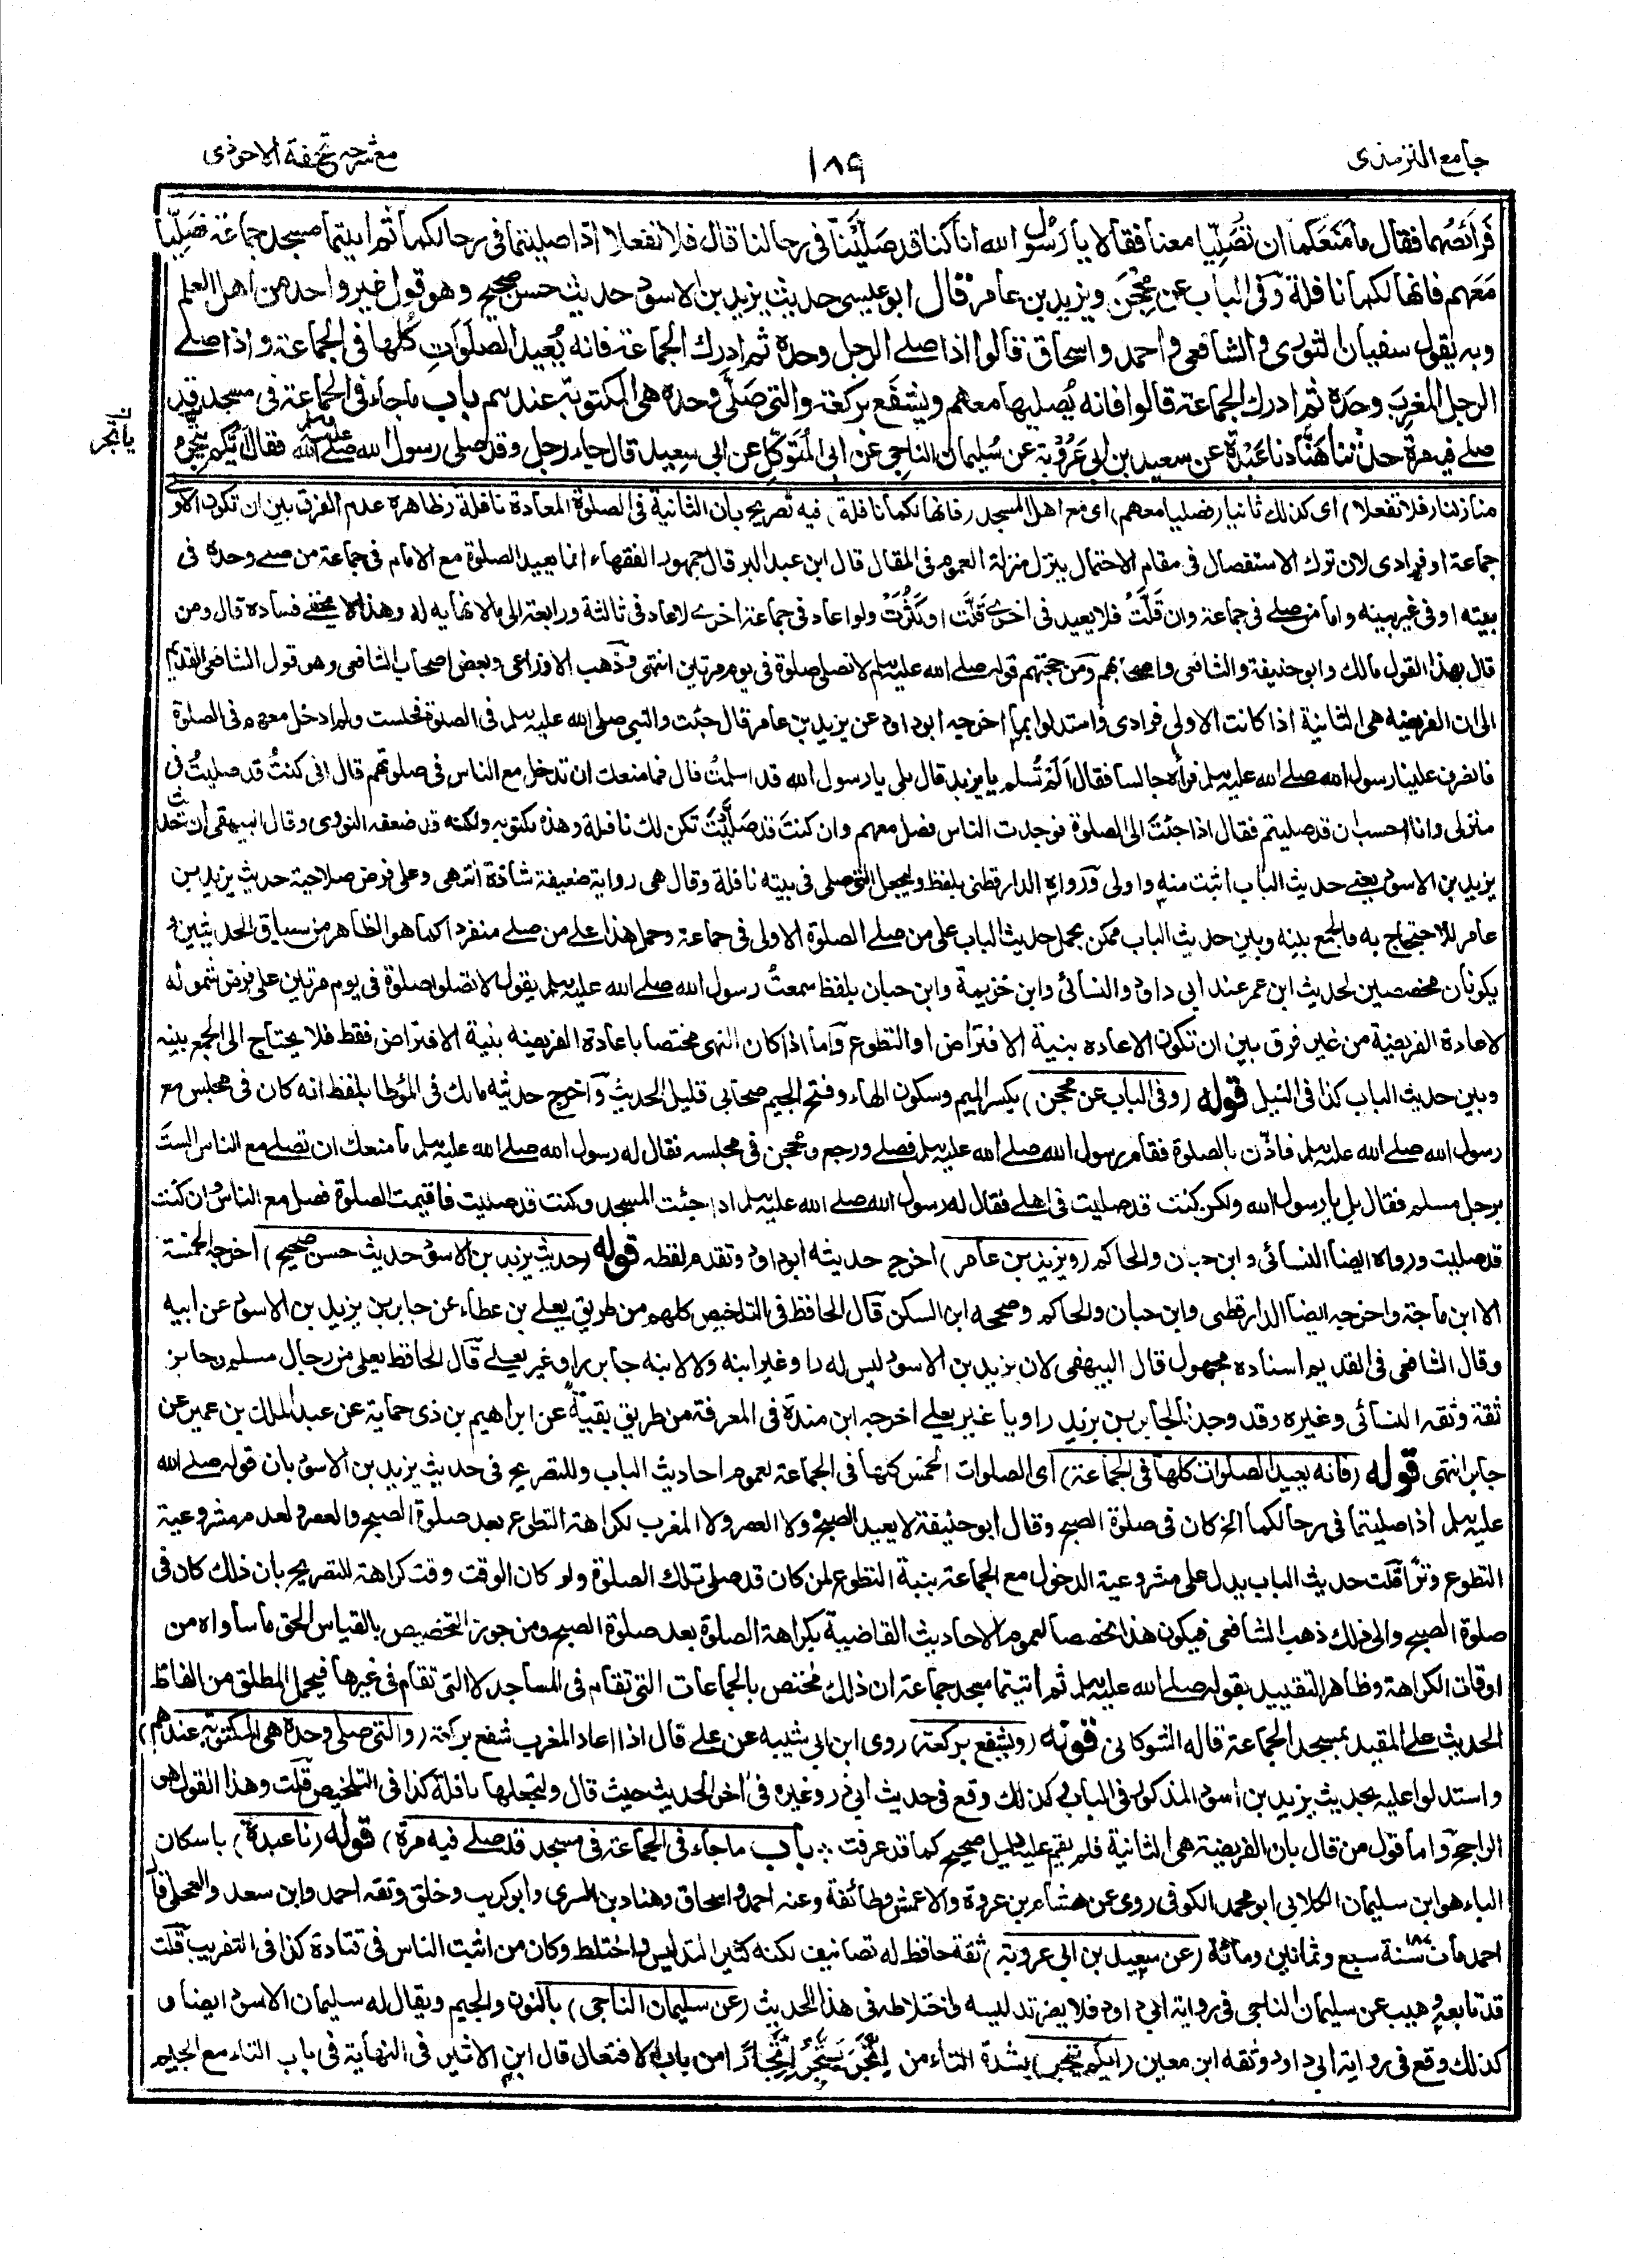 جامع الترمذی
١٨٩
مع شرحہ تحفة الاحوذی
فرائصُهما فقال ما مَنَعَكما ان تُصَلِّيا معنا فقالا يا رَسُول الله انا كنا قد صَلَّيْنا فى رحالنا قال فلا تفعلا اذا صليتما فى رحالكما ثم اتيتما مسجد جماعة فصَلِّيا
مَعَهم فانها لكما نافلة وفى الباب عن مِحْجَن ويزيد بن عامر قال ابو عيسى حديث يزيد بن الاسود حديث حسن صحيح وهو قول غير واحد من اهل العلم
وبه يقول سفيان الثورى والشافعى واحمد واسحاق قالوا اذا صلے الرجل وحده ثم ادرك الجماعة فانه يُعيد الصلَوَاتِ كُلها فى الجماعة واذا صلے
الرجل المغربَ وحدَه ثم ادرك الجماعة قالوا فانه يُصليها معهم ويشفَع بركعة والتى صَلَّى وحده هى المكتوبة عندهم باب ما جاء فى الجماعة فى مسجد قد
صلے فيه مرة حدثنا هَنَّاد نا عَبْدَة عن سعيد بن ابى عَرُوبة عن سُليمان الناجِى عن ابى المُتَوَكِّل عن ابى سعِيد قال جاء رجل وقد صلى رسول الله صلى الله عليه وسلم فقال ايُّكم يتَّجِر
منازلنا (فلا تفعلا) اى كذلك ثانيا (فصليا معهم) اى مع اهل المسجد (فانها لكما نافلة) فيه تصريح بان الثانية فى الصلوة المعادة نافلة وظاهره عدم الفرق بين ان تكون الاولى
جماعة او فرادى لان ترك الاستفصال فى مقام الاحتمال ينزل منزلة العموم فى المقال قال ابن عبد البر قال جمهور الفقهاء انما يعيد الصلوة مع الامام فى جماعة من صلے وحده فى
بيته او فى غير بيته واما من صلے فى جماعة وان قَلَّتْ فلا يعيد فى اخرى قَلَّت او كَثُرَتْ ولو اعاد فى جماعة اخرے لاعاد فى ثالثة ورابعة الى ما لا نهاية له وهذا لا يخفے فساده قال ومن
قال بهذا القول مالك وابو حنيفة والشافعى واصحابهم ومن حجتهم قوله صلے الله عليه وسلم لا تصلى صلوة فى يوم مرتين انتهى وذهب الاوزاعى وبعض اصحاب الشافعى وهو قول الشافعى القديم
الى ان الفريضة هى الثانية اذا كانت الاولى فرادى واستدلوا بما اخرجه ابو داود عن يزيد بن عامر قال جئت والنبى صلى الله عليه وسلم فى الصلوة فجلست ولم ادخل معهم فى الصلوة
فانصرف علينا رسول الله صلے الله عليه وسلم فرآه جالسا فقال اَلَمْ تُسلم يا يزيد قال بلى يا رسول الله قد اسلمتُ قال فما منعك ان تدخل مع الناس فى صلوتهم قال انى كنتُ قد صليتُ فى
منزلى وانا احسب ان قد صليتم فقال اذا جئتَ الى الصلوة فوجدت الناس فصل معهم وان كنتَ قد صَلَّيْتَ تكن لك نافلة وهذه مكتوبة ولكنه قد ضعفه النووى وقال البيهقى ان حديث
يزيد بن الاسود يعنے حديث الباب اثبت منه واولى ورواه الدارقطنى بلفظ وليجعل التى صلى فى بيته نافلة وقال هى رواية ضعيفة شاذة انتهى وعلى فرض صلاحية حديث يزيد بن
عامر للاحتجاج به فالجمع بينه وبين حديث الباب ممكن بحمل حديث الباب على من صلے الصلوة الاولى فى جماعة وحمل هذا علے من صلے منفردا كما هو الظاهر من سياق الحديثين و
يكونان مخصصين لحديث ابن عمر عند ابى داود والنسائى وابن خزيمة وابن حبان بلفظ سمعتُ رسول الله صلے الله عليه وسلم يقول لا تصلوا صلوة فى يوم مرتين على فرض شموله
لاعادة الفريضة من غير فرق بين ان تكون الاعادة بنية الافتراض او التطوع واما اذا كان النهى مختصا باعادة الفريضة بنية الافتراض فقط فلا يحتاج الى الجمع بينه
وبين حديث الباب كذا فى النيل قوله (وفى الباب عن محجن) بكسر الميم وسكون الهاء وفتح الجيم صحابى قليل الحديث واخرج حديثه مالك فى المؤطا بلفظ انه كان فى مجلس مع
رسول الله صلے الله عليه وسلم فاذّن بالصلوة فقام رسول الله صلے الله عليه وسلم فصلے ورجع ومحجن فى مجلسه فقال له رسول الله صلے الله عليه وسلم ما منعك ان تصلے مع الناس الستَ
برجل مسلم فقال بلى يا رسول الله ولكن كنت قد صليت فى اهلے فقال له رسول الله صلے الله عليه وسلم اذا جئت المسجد وكنت قد صليت فاقيمت الصلوة فصل مع الناس وان كنت
قد صليت ورواه ايضا النسائى وابن حبان والحاكم (ويزيد بن عامر) اخرج حديثه ابو داود وتقدم لفظه قوله (حديث يزيد بن الاسود حديث حسن صحيح) اخرجه الخمسة
الا ابن ماجة واخرجه ايضا الدارقطنى وابن حبان والحاكم وصححه ابن السكن قال الحافظ فى التلخيص كلهم من طريق يعلے بن عطاء عن جابر بن يزيد بن الاسود عن ابيه
وقال الشافعى فى القديم اسناده مجهول قال البيهقى لان يزيد بن الاسود ليس له راو غير ابنه ولا لابنه جابر راو غير يعلے قال الحافظ يعلى من رجال مسلم وجابر
ثقة وثقه النسائى وغيره وقد وجدنا لجابر بن يزيد راويا غير يعلے اخرجه ابن مندة فى المعرفة من طريق بقية عن ابراهيم بن ذى حماية عن عبد الملك بن عمير عن
جابر انتهى قوله (فانه يعيد الصلوات كلها فى الجماعة) اى الصلوات الخمس كلها فى الجماعة لعموم احاديث الباب وللتصريح فى حديث يزيد بن الاسود بان قوله صلے الله
عليه وسلم اذا صليتما فى رحالكما الخ كان فى صلوة الصبح وقال ابو حنيفة لا يعيد الصبح ولا العصر ولا المغرب لكراهة التطوع بعد صلوة الصبح والعصر ولعدم مشروعية
التطوع وترا قلت حديث الباب يدل على مشروعية الدخول مع الجماعة بنية التطوع لمن كان قد صلى تلك الصلوة ولو كان الوقت وقت كراهة للتصريح بان ذلك كان فى
صلوة الصبح والى ذلك ذهب الشافعى فيكون هذا مخصصا لعموم الاحاديث القاضية بكراهة الصلوة بعد صلوة الصبح ومن جوز التخصيص بالقياس الحق ما ساواه من
اوقات الكراهة وظاهر التقييد بقوله صلے الله عليه وسلم ثم اتيتما مسجد جماعة ان ذلك مختص بالجماعات التى تقام فى المساجد لا التى تقام فى غيرها فيحمل المطلق من الفاظ
الحديث علے المقيد بمسجد الجماعة قاله الشوكانى قوله (ويشفع بركعة) روى ابن ابى شيبه عن علے قال اذا اعاد المغرب شفع بركعة (والتى صلى وحده هى المكتوبة عندهم)
واستدلوا عليه بحديث يزيد بن اسود المذكور فى الباب وكذلك وقع فى حديث ابى ذر وغيره فى اخر الحديث حيث قال وليجعلها نافلة كذا فى التلخيص قلت وهذا القول هو
الراجح واما قول من قال بان الفريضة هى الثانية فلم يقم عليه دليل صحيح كما قد عرفت ∴ باب ما جاء فى الجماعة فى مسجد قد صلے فيه مرة) قوله (نا عبدة) باسكان
الباء هو ابن سليمان الكلابى ابو محمد الكوفى روى عن هشام بن عروة والاعمش وطائفة وعنه احمد واسحاق وهناد بن السرى وابو كريب وخلق وثقه احمد وابن سعد والعجلى قال
احمد مات سنة ١٨٧ سبع وثمانين ومائة (عن سعيد بن ابى عروبة) ثقة حافظ له تصانيف لكنه كثير التدليس واختلط وكان من اثبت الناس فى قتادة كذا فى التقريب قلت
قد تابعه وهيب عن سليمان الناجى فى رواية ابى داود فلا يضر تدليسه واختلاطه فى هذا الحديث (عن سليمان الناجى) بالنون والجيم ويقال له سليمان الاسود ايضا و
كذلك وقع فى رواية ابى داود وثقه ابن معين (ايكم يتجر) بشدة التاء من اِتَّجَرَ يَتَّجِرُ اِتِّجَاراً من باب الافتعال قال ابن الاثير فى النهاية فى باب التاء مع الجيم